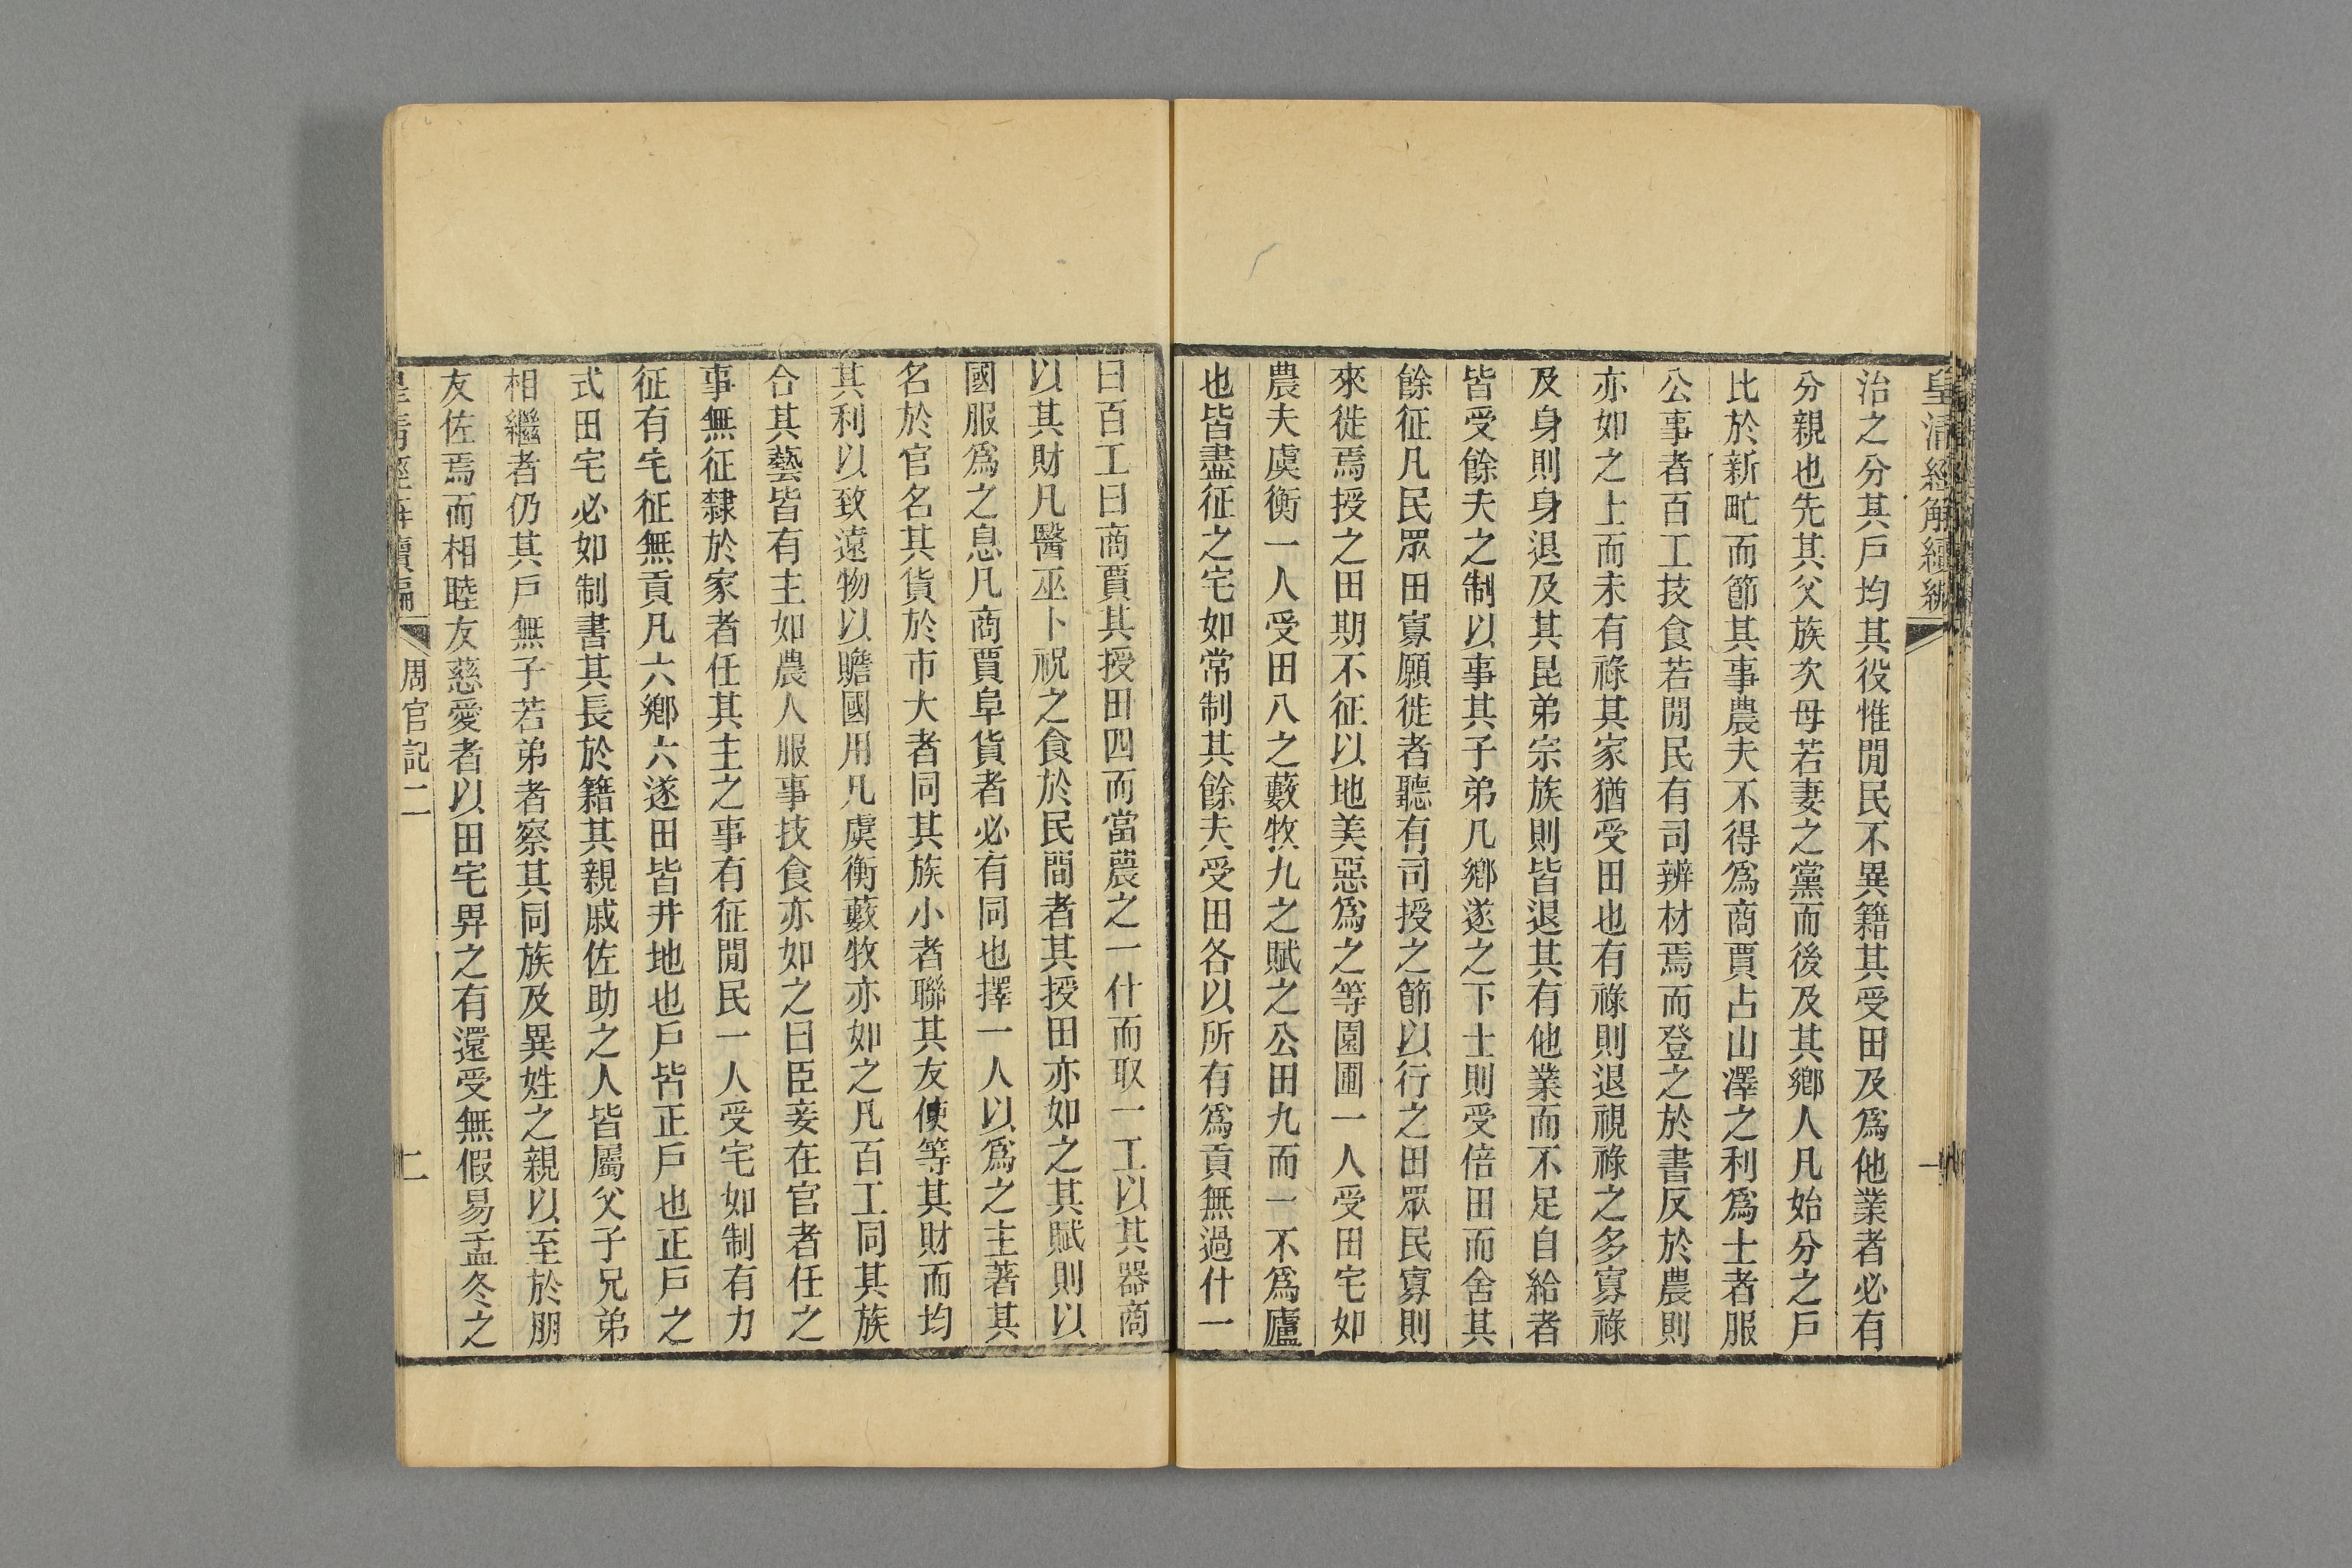 皇清經解續編
一
治之分其戶均其役惟閒民不異籍其受田及爲他業者必有
分親也先其父族次母若妻之黨而後及其鄉人凡始分之戶
比於新甿而節其事農夫不得爲商賈占山澤之利爲士者服
公事者百工技食若閒民有司辨材焉而登之於書反於農則
亦如之上而未有祿其家猶受田也有祿則退視祿之多寡祿
及身則身退及其昆弟宗族則皆退其有他業而不足自給者
皆受餘夫之制以事其子弟凡鄉遂之下士則受倍田而舍其
餘征凡民眾田寡願徙者聽有司授之節以行之田眾民寡則
來徙焉授之田期不征以地美惡爲之等園圃一人受田宅如
農夫虞衡一人受田八之藪牧九之賦之公田九而一不爲廬
也皆盡征之宅如常制其餘夫受田各以所有爲貢無過什一
曰百工曰商賈其授田四而當農之一什而取一工以其器商
以其財凡醫巫卜祝之食於民間者其授田亦如之其賦則以
國服爲之息凡商賈阜貨者必有同也擇一人以爲之主著其
名於官名其貨於市大者同其族小者聯其友使等其財而均
其利以致遠物以贍國用凡虞衡藪牧亦如之凡百工同其族
合其藝皆有主如農人服事技食亦如之曰臣妾在官者任之
事無征隸於家者任其主之事有征閒民一人受宅如制有力
征有宅征無貢凡六鄉六遂田皆井地也戶皆正戶也正戶之
式田宅必如制書其長於籍其親戚佐助之人皆屬父子兄弟
相繼者仍其戶無子若弟者察其同族及異姓之親以至於朋
友佐焉而相睦友慈愛者以田宅畀之有還受無假易孟冬之
皇清經解續編
周官記二
二